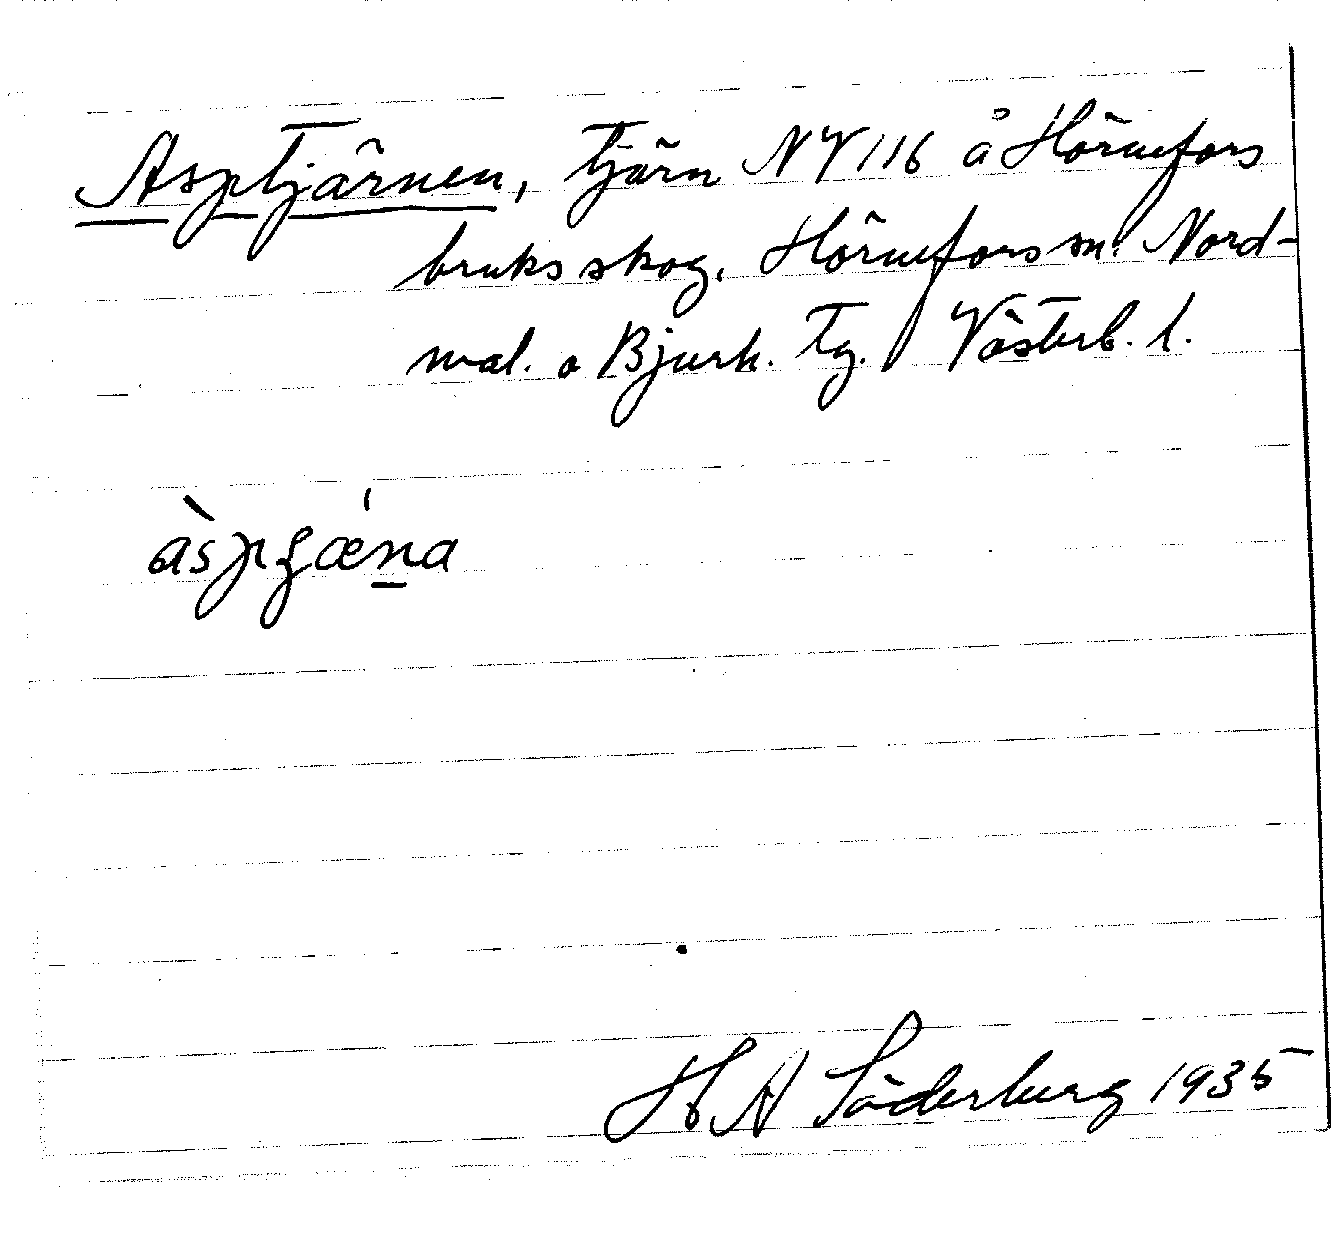 Asptjärnen, tjärn NV 116 å Hörnefors
bruks skog. Hörnefors sn. Nord-
mal. o Bjurh. Tg. Västerb. l.
H A Söderberg 1935